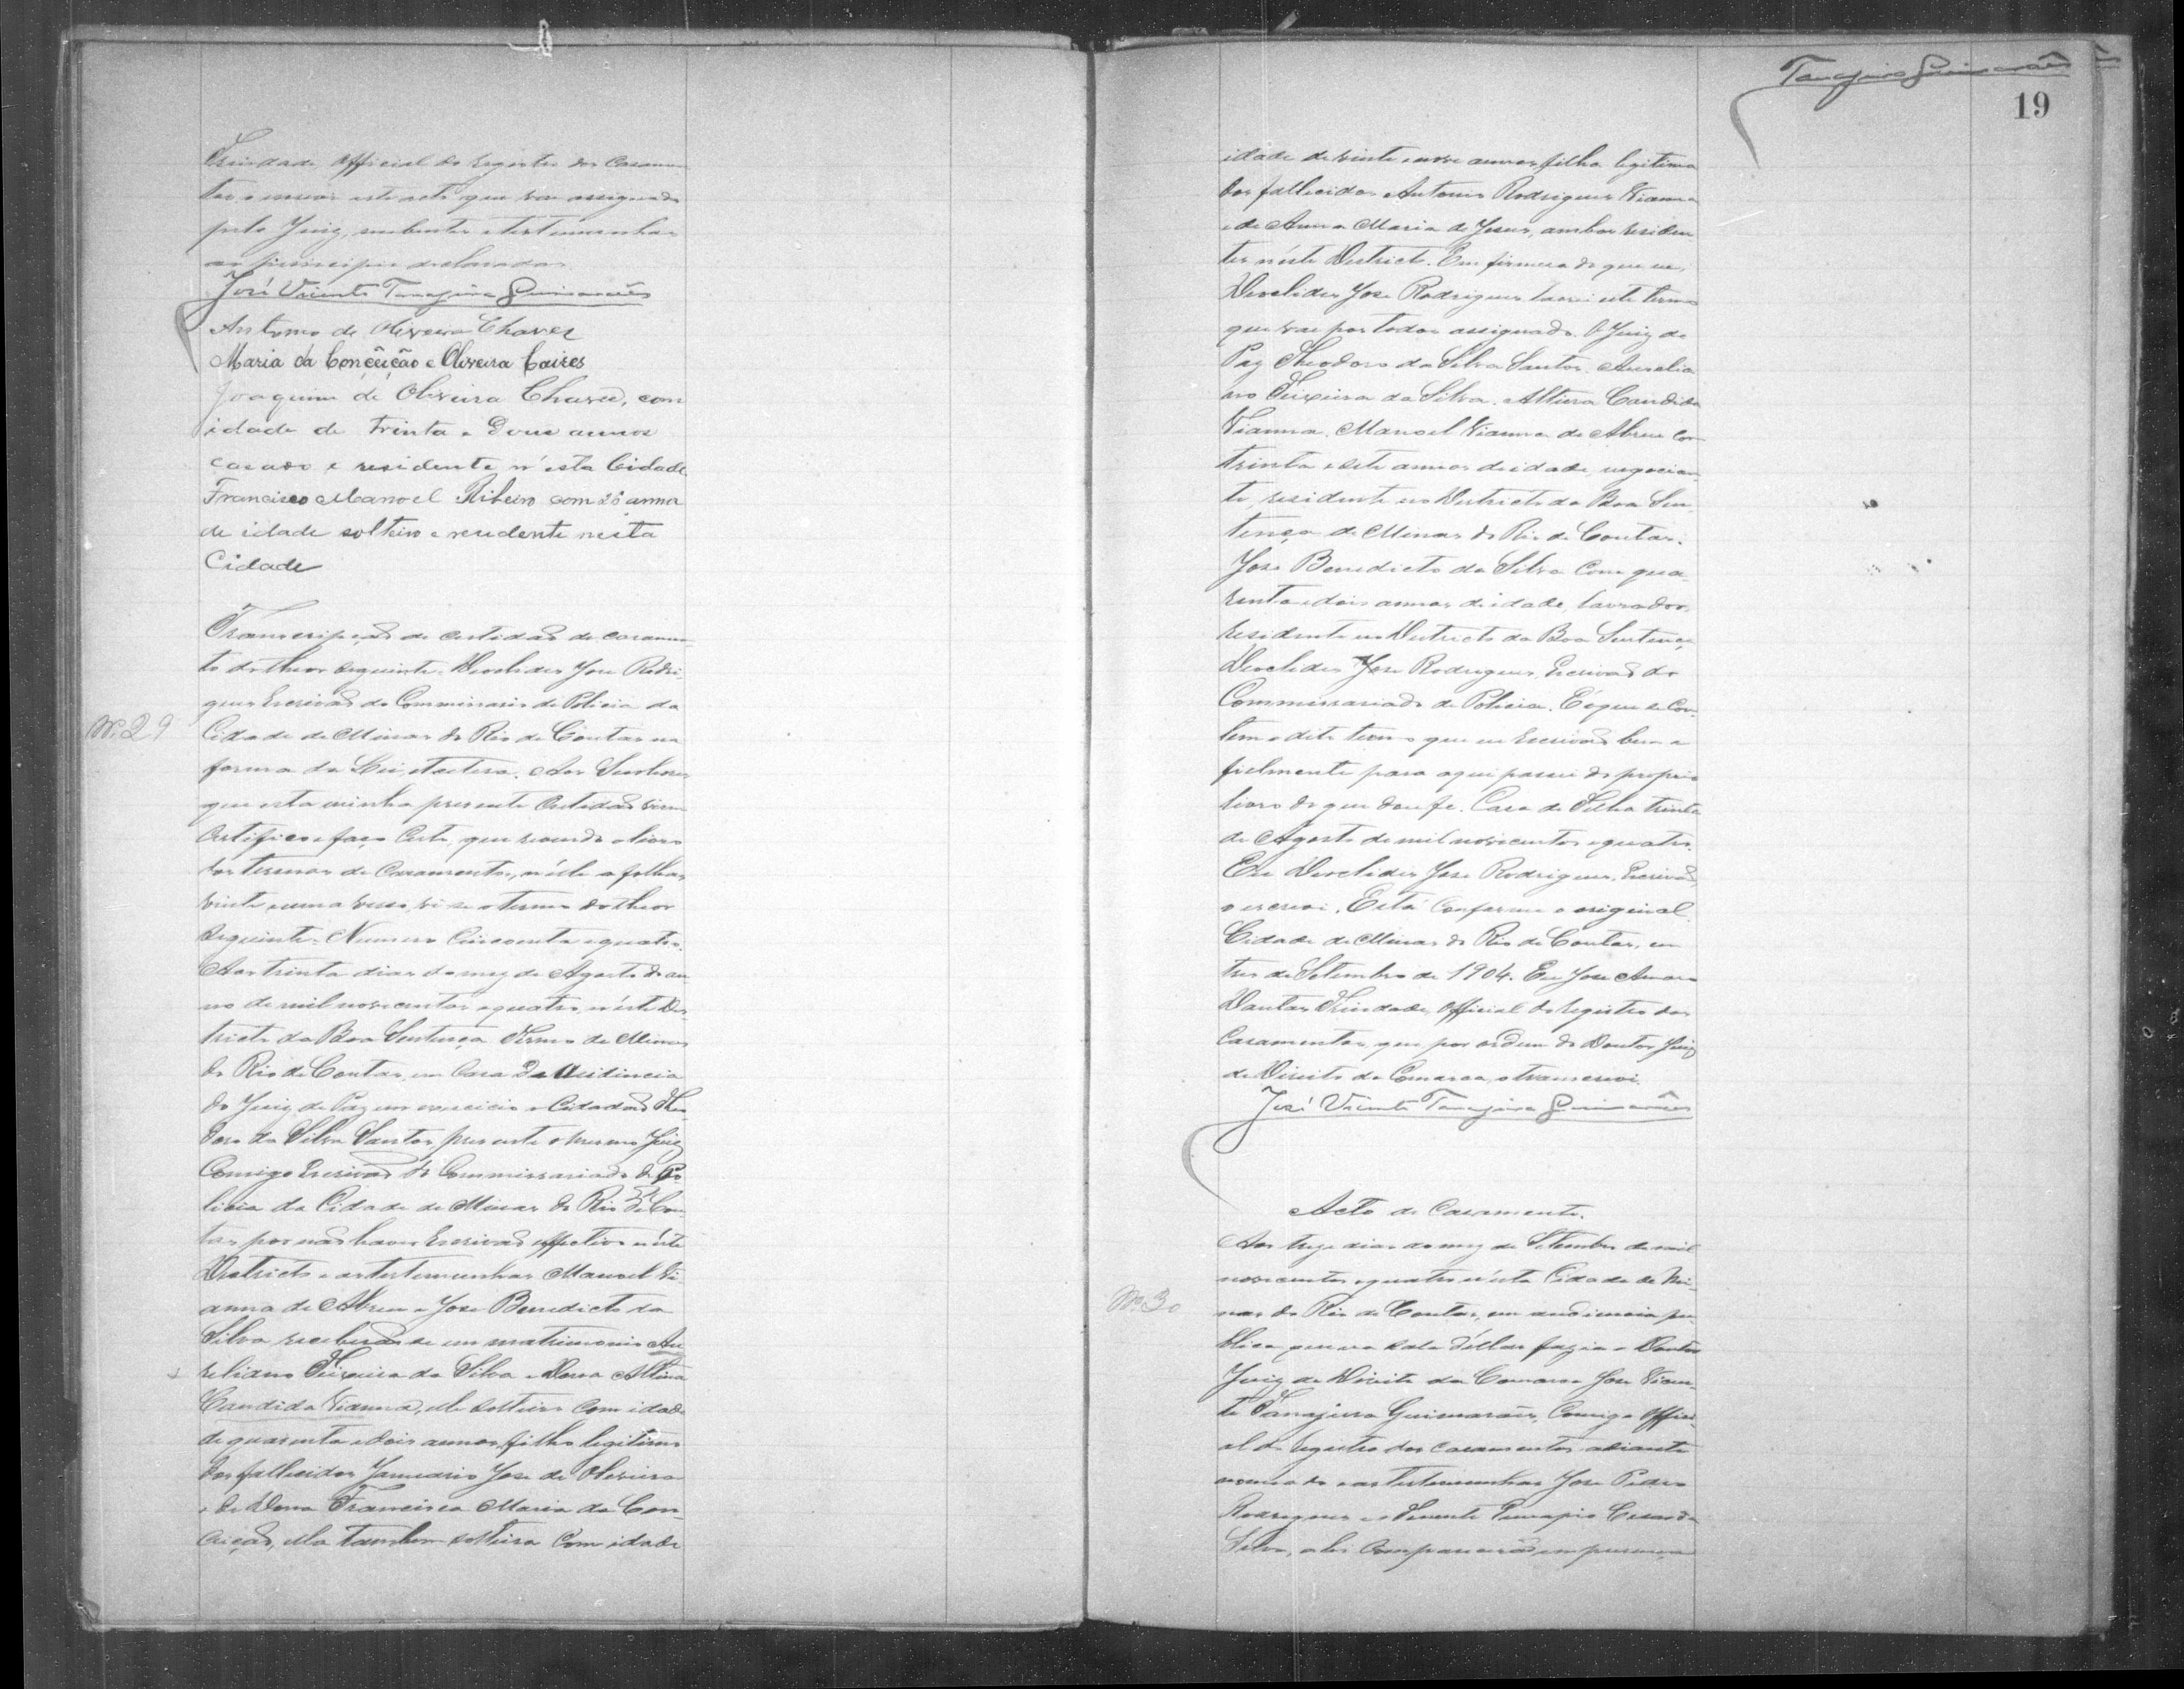 Trindade, Official do registro dos Casamen
tos o escrevi este acto que vae assignado
pelo Juiz, nubentes e testemunhas
ao principio declaradas
José Vicente Tanajura Guimarães
Antonio de Oliveira Chaves
Maria da Conceição e Oliveira Caires
Joaquim de Oliveira Chaves, com
idade de trinta e dous annos
casado e residente n'esta Cidade
Francisco Manoel Ribeiro com 26 annos
de idade solteiro e residente nesta
Cidade
Transcripção de certidão de casamen
to do theor seguinte. Deoclides Jose Rodri-
gues Escrivão do Commissario de Policia da
No. 29
Cidade de Minas do Rio de Contas na
forma da Lei, etcetera. Aos Senhores
que esta minha presente Certidão virem
Certifico e faço Certo, que revendo o livro
dos termos de Casamentos, n'elle a folhas
vinte e uma verso, vi se o termo do theor
seguinte. Numero Cincoenta e quatro.
Aos trinta dias do mez de Agosto do an
no de mil novecentos e quatro, n'este Dis
tricto da Boa Sentença Termo de Minas
do Rio de Contas, em Casa de Audiencia
do Juiz de Paz em exercicio o Cidadão Theo
doro da Silva Santos, presente o mesmo Juiz
Comigo Escrivão do Commissariado de Po
licia da Cidade de Minas do Rio de Con
tas por não haver Escrivão effectivo n'este
Districto e as testemunhas Manoel Vi
anna de Abreu e Jose Benedicto da
Silva receberão se em matrimonio Au
reliano Teixeira da Silva e Dona Altina
Candida Vianna, elle solteiro com idade
de quarenta e dois annos, filho legitimo
dos fallecidos Januario Jose de Oliveira
e de Dona Francisca Maria da Con-
ceição, ella tambem solteira Com idade
Tanajura Guimarães
19
idade de vinte e nove annos, filha legitima
dos fallecidos Antonio Rodrigues Vianna
e de Anna Maria de Jesus, ambos residen
tes n'este Districto. Em firmeza do que eu,
Deoclides Jose Rodrigues lavrei este termo
que vae por todos assignado. O Juiz de
Paz Theodoro da Silva Santos. Aurelia
no Teixeira da Silva. Altina Candida
Vianna. Manoel Vianna de Abreu com
trinta e sete annos de idade, negocian-
te, residente no Districto da Boa Sen
tença de Minas do Rio de Contas.
Jose Benedicto da Silva Com qua-
renta e dois annos de idade, lavrador,
residente no Districto da Boa Sentença
Deoclides Jose Rodrigues, Escrivão do
Commissariado de Policia. É o que se Con-
tem o dito termo que eu Escrivão bem e
fielmente para aqui passei do proprio
livro do que dou fe. Casa de Telha trinta
de Agosto de mil novecentos e quatro.
Eu Deoclides Jose Rodrigues, Escrivão,
o escrevi. Está Conforme o original.
Cidade de Minas do Rio de Contas, em
tres de Setembro de 1904. Eu Jose Amaro
Dantas Trindade, official do registro dos
Casamentos, que por ordem do Doutor Juiz
de Direito da Comarca, o transcrevi.
José Vicente Tanajura Guimarães
Acto de Casamento.
Aos treze dias do mez de Setembro de mil
novecentos e quatro n'esta Cidade de Mi-
No. 30
nas do Rio de Contas, em audiencia pu
blica que na sala d'ellas fazia o Doutor
Juiz de Direito da Comarca Jose Vicen-
te Tanajura Guimarães, Comigo Offici
al do registro dos casamentos adiante
nomeado e as testemunhas Jose Pedro
Rodrigues e o Tenente Cesar da
Silva, ahi Compareceram em presença